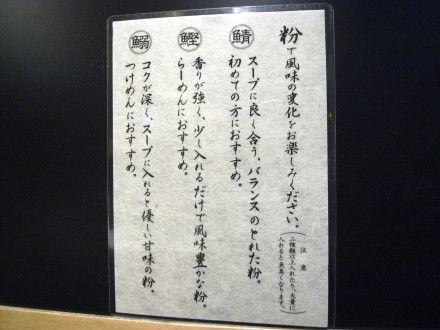 粉で風味の変化をお楽しみください。
(注意 二種類以上入れたり、大量に
入れると魚臭くなります。)
鯖
スープに良く合う、バランスのとれた粉。
初めての方におすすめ。
鰹
香りが強く、少し入れるだけで風味豊かな粉。
らーめんにおすすめ。
鰯
コクが深く、スープに入れると優しい甘味の粉。
つけめんにおすすめ。